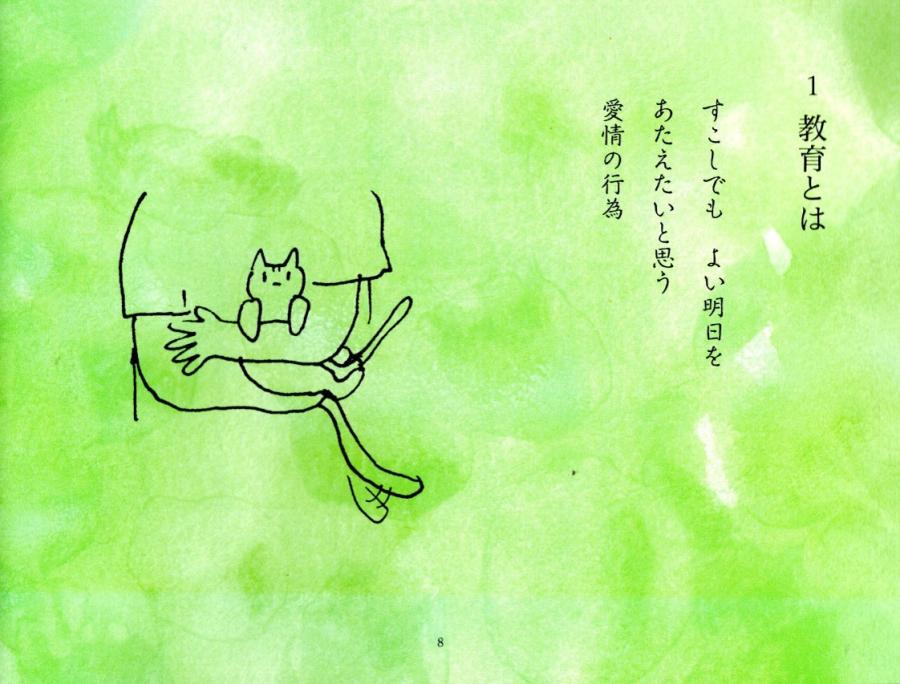 1 教育とは
すこしでも よい明日を
あたえたいと思う
愛情の行為
8